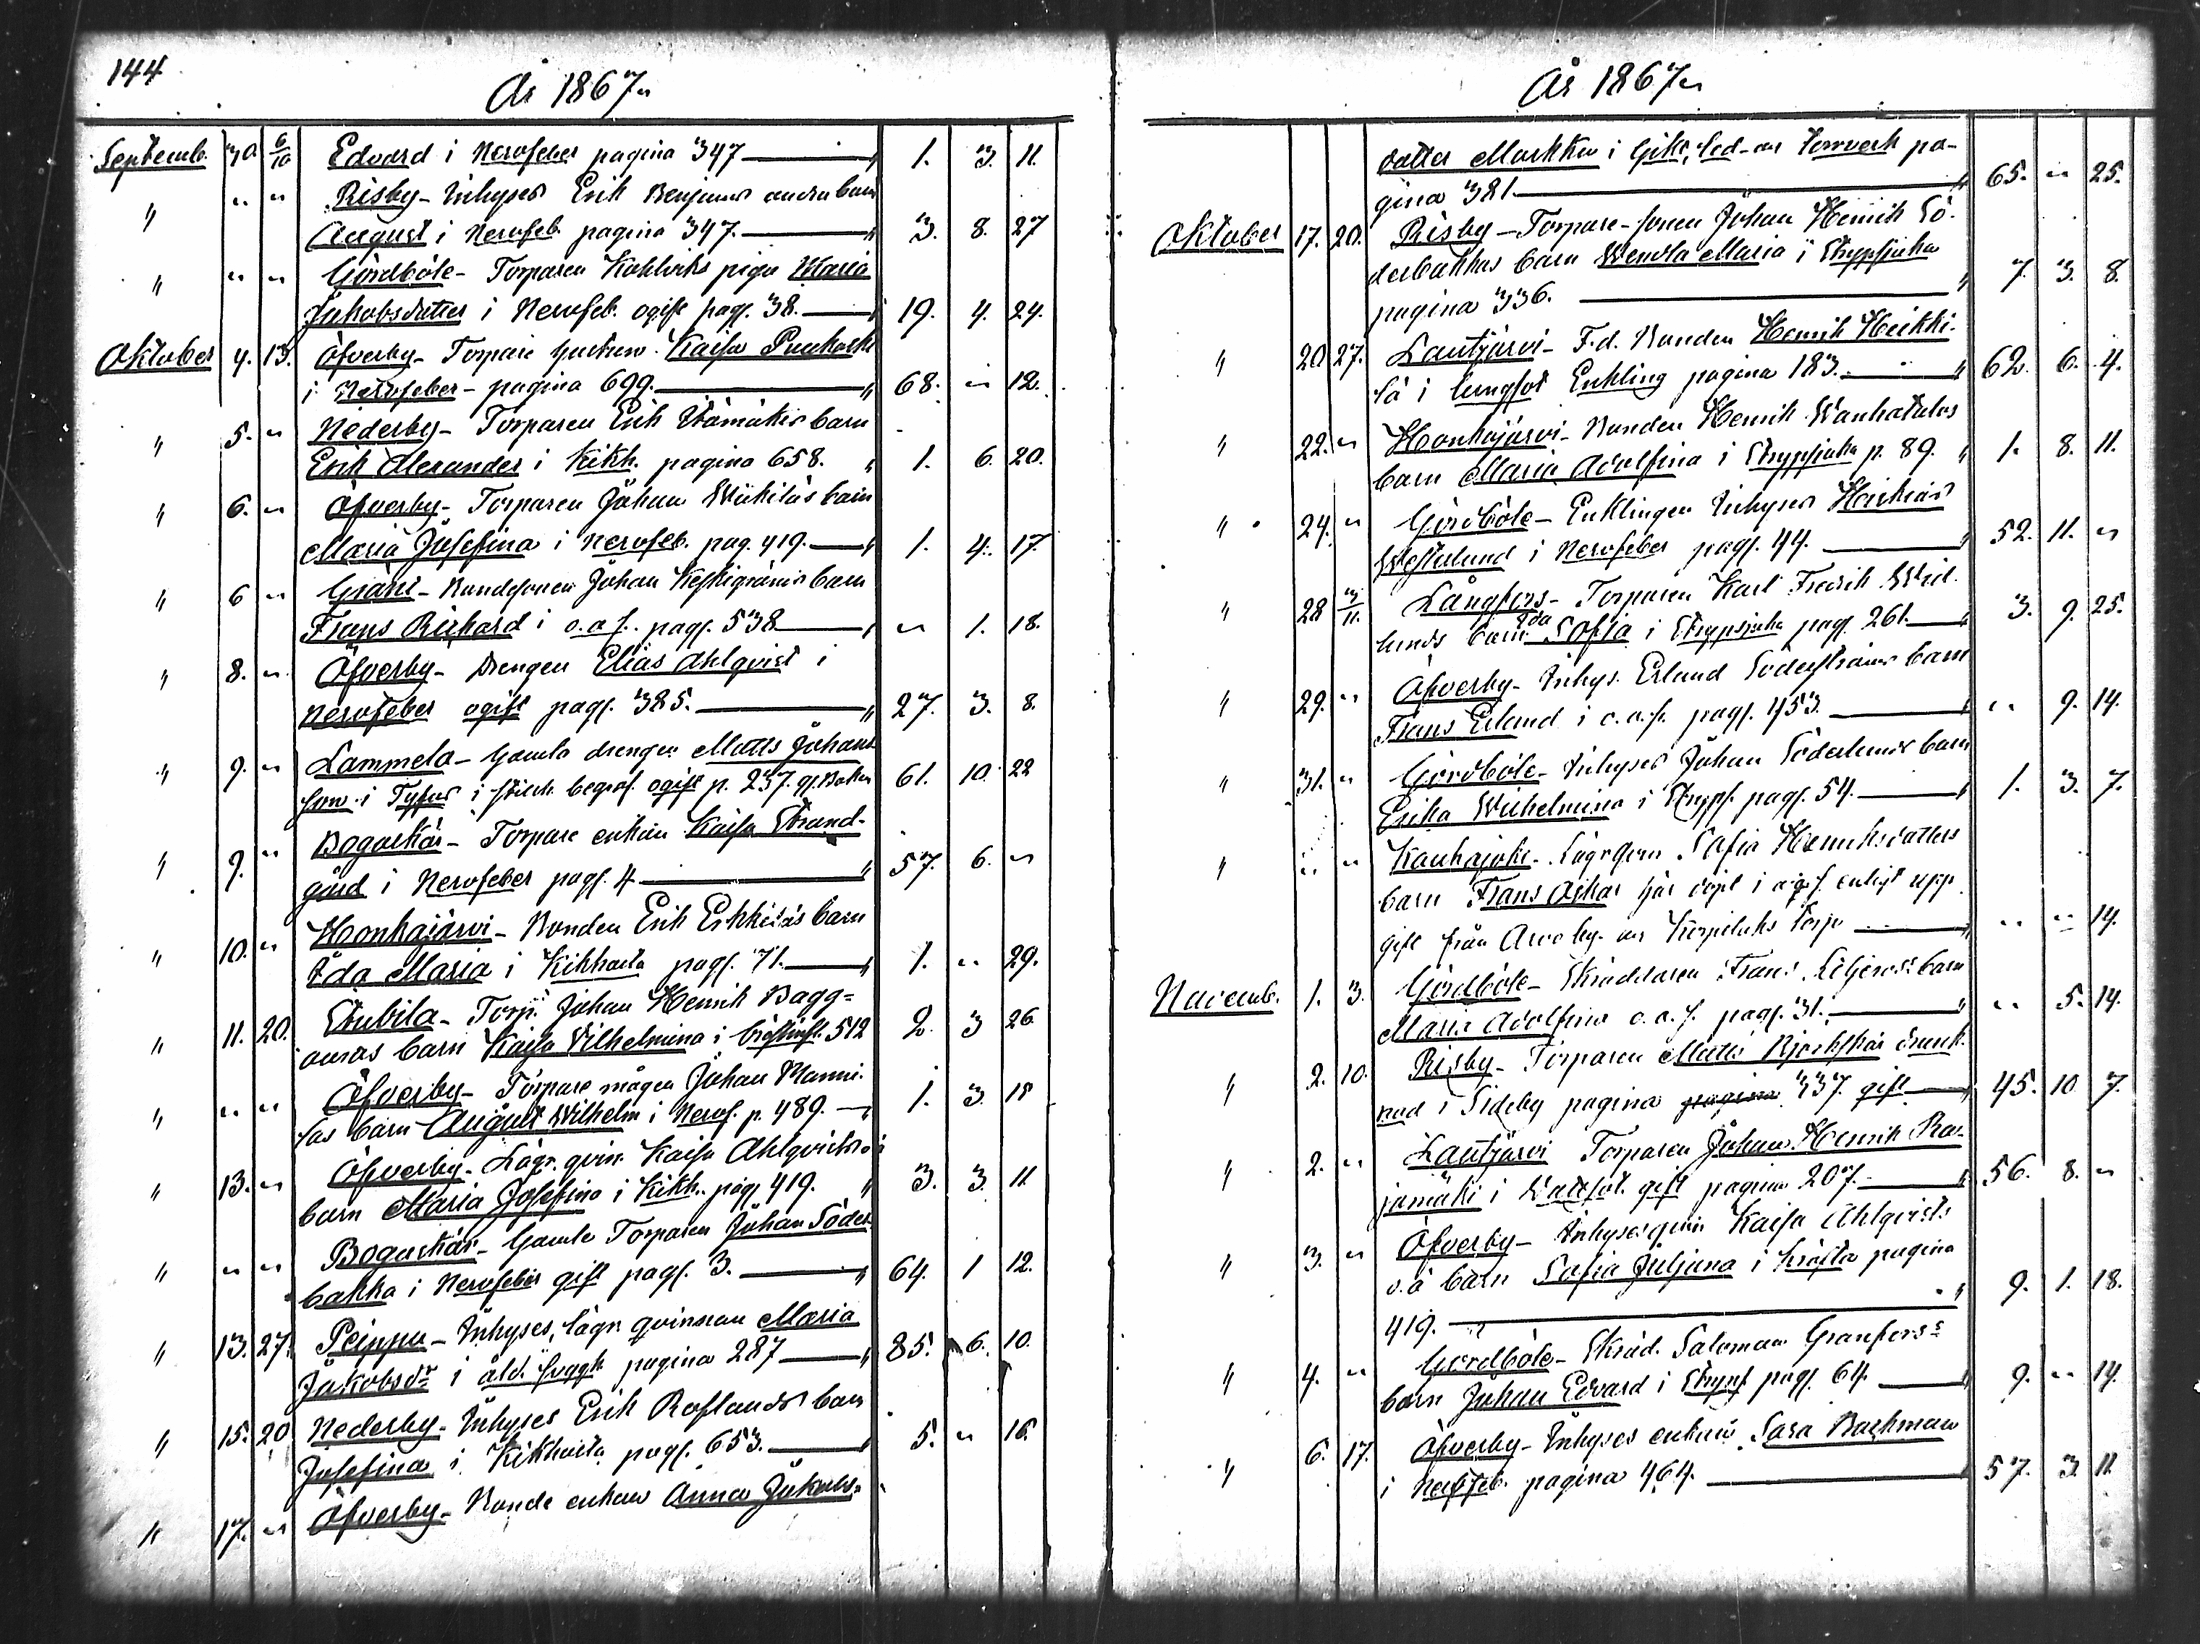 144
År 1867
Septemb. 30. 6/10 Edvard i Nervfeber pagina 347 — " 1. 3. 11.
" " " Risby - Inhyses Erik Benjamins andra barn
August i Nervfeb. pagina 347. — " 3. 8. 27
" " " Gördböle - Torparen Kohlviks piga Maria
Jakobsdotter i Nervfeb. ogift pag. 38. — 19. 4. 24.
Oktober 4. 13. Öfverby - Torpare Kaisa
i Nervfeber - pagina 699. — " 68. " 12.
" 5. " Nederby - Torparen Erik barn
Erik Alexander i Kikh. pagina 658. " 1. 6. 20.
" 6. " Öfverby - Torparen Johan Wiikiläs barn
Maria Josefina i nervfeb. pag. 419. — " 1. 4. 17.
" 6 " Gränt - Bondesonen Johan barn
Frans Richard i o.a.f. pag. 538 — " " 1. 18.
" 8. " Öfverby - Drengen Elias Ahlqvist i
nervfeber ogift pag. 385. — " 27. 3. 8.
" 9. " Lammela - Gamla drengen Matts Johans
son i Tyfus i begraf. ogift p. 237. 61. 10. 22
" 9. " Bogaskär - Torpare enkan Kaisa Strand-
gård i Nervfeber pag. 4 — " 57. 6. "
" 10. " Honkajärvi - Bonden Erik Erkkiläs barn
Ida Maria i Kikhosta pag. 71. — " 1. " 29.
" 11. 20. Stubila - Torp. Johan Henrik Bagg=
anras barn Kaisa Vilhelmina i 512 2. 3 26.
" " " Öfverby - Torpare mågen Johan Manni-
las barn August Wilhelm i Nervf. p. 489. — " 1. 3. 15
" 13. " Öfverby - Lösgr. qvin. Kaisa Ahlqvists o.ä
barn Maria Josefina i Kikh. pag. 419. " 3. 3. 11
" " " Bogaskär - Gamle Torparen Johan Söder-
backa i Nervfeber gift pag. 3. — " 64. 1 12.
" 13. 27. Peippu - Inhyses, lösgr qvinnan Maria
Jakobsdr i åld. svagh pagina 287 — " 85. 6. 10.
" 15. 20 Nederby - Inhyses Erik Roslunds barn
Josefina i Kikhosta pag. 653. — " 5. " 16.
" 17. " Öfverby - Bonde enkan Anna Jakobs-
År 1867
dotter Markku i Gikt, led- av pa-
gina 381. — " 65. " 25.
Oktober 17. 20. Risby - Torpare-sonen Johan Henrik Sö-
derbackas barn Wendla Maria i Strypsjuka
pagina 336. — " 7. 3. 8.
" 20. 27. Lautjärvi - F.d. Bonden Henrik Heikki-
lä i lungsot Enkling pagina 183. — " 62. 6. 4.
" 22. " Honkajärvi - Bonden Henrik Wanhatalos
barn Maria Adolfina i Strypsjuka p. 89. " 1. 8. 11.
" 24. " Gördböle - Enklingen Inhyses
Westerlund i Nervfeber pag. 44. — " 52. 11. "
" 28 3/11. Långfors - Torparen Karl Fredrik Wid-
lunds barn Ida Sofia i Strypsjuka pag. 261. — " 3. 9. 25.
" 29. " Öfverby - Inhys. Erland Söderströms barn
Frans Erland i o.a.f. pag. 453. — " " 9. 14.
" 31. " Gördböle - Inhyses Johan Söderlunds barn
Erika Wilhelmina i Stryps. pag. 54. — " 1. 3. 7.
" " " Kauhajoki - Sofia Henriksdotters
barn Frans Oskar här i o.a.f. enligt upp
gift från Arvoby. — " " " 14.
Novemb. 1. 3. Gördböle - Skräddaren Frans Liljeros's barn
Maria Adolfina o.a.f. pag. 31. — " " 5. 14.
" 2. 10. Risby - Torparen Matts Björkskär drunk-
nad i Sideby pagina 337. gift — " 45. 10 7.
" 2. " Lautjärvi Torparen Johan Henrik Ra-
jamäki i gift pagina 207. — " 56. 8. "
" 3. " Öfverby - Inhyses qvin Kaisa Ahlqvists
o.ä barn Sofia Juliana i kräfta pagina
419. — " 9. 1. 18.
" 4. " Gördböle - Skräd. Salomon Granfors's
barn Johan Edvard i Stryps pag. 64. — " 9. " 14.
" 6. 17. Öfverby - Inhyses enkan Sara Backman
i Nervfeb. pagina 464. — 57. 3. 11.